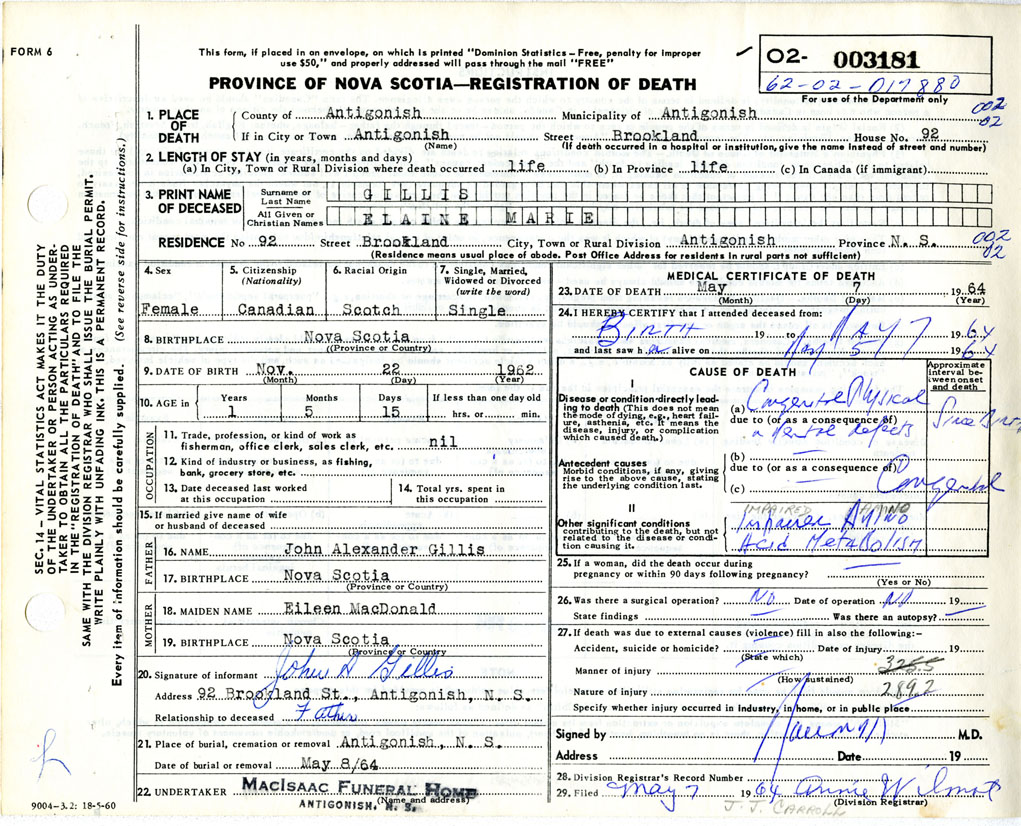 FORM 6
This form, if placed in an envelope, on which is printed "Dominion Statistics – Free, penalty for improper
use $50," and properly addressed will pass through the mail "FREE"
PROVINCE OF NOVA SCOTIA—REGISTRATION OF DEATH
02- 003181
62-02-017880
For use of the Department only
002
02
1. PLACE OF DEATH
County of Antigonish Municipality of Antigonish
If in City or Town Antigonish Street Brookland House No. 92
(Name) (If death occurred in a hospital or institution, give the name instead of street and number)
2. LENGTH OF STAY (in years, months and days)
(a) In City, Town or Rural Division where death occurred life (b) In Province life (c) In Canada (if immigrant)
3. PRINT NAME OF DECEASED
Surname or Last Name GILLIS
All Given or Christian Names ELAINE MARIE
RESIDENCE No 92 Street Brookland City, Town or Rural Division Antigonish Province N. S.
002
02
(Residence means usual place of abode. Post Office Address for residents in rural parts not sufficient)
SEC. 14 – VITAL STATISTICS ACT MAKES IT THE DUTY
OF THE UNDERTAKER OR PERSON ACTING AS UNDER-
TAKER TO OBTAIN ALL THE PARTICULARS REQUIRED
IN THE "REGISTRATION OF DEATH" AND TO FILE THE
SAME WITH THE DIVISION REGISTRAR WHO SHALL ISSUE THE BURIAL PERMIT.
WRITE PLAINLY WITH UNFADING INK. THIS IS A PERMANENT RECORD.
Every item of information should be carefully supplied. (See reverse side for instructions.)
4. Sex
Female
5. Citizenship
(Nationality)
Canadian
6. Racial Origin
Scotch
7. Single, Married,
Widowed or Divorced
(write the word)
Single
8. BIRTHPLACE Nova Scotia
(Province or Country)
9. DATE OF BIRTH Nov. 22 1962
(Month) (Day) (Year)
10. AGE in
Years Months Days If less than one day old
1 5 15 hrs. or min.
OCCUPATION
11. Trade, profession, or kind of work as
fisherman, office clerk, sales clerk, etc. nil
12. Kind of industry or business, as fishing,
bank, grocery store, etc.
13. Date deceased last worked
at this occupation
14. Total yrs. spent in
this occupation
15. If married give name of wife
or husband of deceased
FATHER
16. NAME John Alexander Gillis
17. BIRTHPLACE Nova Scotia
(Province or Country)
MOTHER
18. MAIDEN NAME Eileen MacDonald
19. BIRTHPLACE Nova Scotia
(Province or Country
20. Signature of informant John A Gillis
Address 92 Brookland St., Antigonish, N. S.
Relationship to deceased Father
21. Place of burial, cremation or removal Antigonish, N. S.
Date of burial or removal May 8/64
22. UNDERTAKER MacIsaac Funeral Home
(Name and address)
ANTIGONISH, N. S.
9004–3.2: 18-5-60
MEDICAL CERTIFICATE OF DEATH
23. DATE OF DEATH May 7 1964
(Month) (Day) (Year)
24. I HEREBY CERTIFY that I attended deceased from:
BIRTH 19 to MAY 7 1964
and last saw her alive on May 5 1964
CAUSE OF DEATH
Approximate
interval be-
tween onset
and death
I
Disease or condition directly lead-
ing to death (This does not mean
the mode of dying, e.g., heart fail-
ure, asthenia, etc. It means the
disease, injury, or complication
which caused death.)
(a) Congenital Physical
due to (or as a consequence of)
& mental defects
Since Birth
Antecedent causes
Morbid conditions, if any, giving
rise to the above cause, stating
the underlying condition last.
(b)
due to (or as a consequence of)
(c) Congenital
II
Other significant conditions
contributing to the death, but not
related to the disease or condi-
tion causing it.
IMPAIRED AMINO
Impaired Amino
Acid Metabolism
25. If a woman, did the death occur during
pregnancy or within 90 days following pregnancy?
(Yes or No)
26. Was there a surgical operation? No Date of operation No 19
State findings Was there an autopsy?
27. If death was due to external causes (violence) fill in also the following:–
Accident, suicide or homicide? Date of injury 19
(State which)
Manner of injury 325.5
(How sustained)
Nature of injury 289.2
Specify whether injury occurred in industry, in home, or in public place
Signed by M.D.
Address Date 19
28. Division Registrar's Record Number
29. Filed May 7 1964 Annie Wilmot
(Division Registrar)
J. J. CARROLL